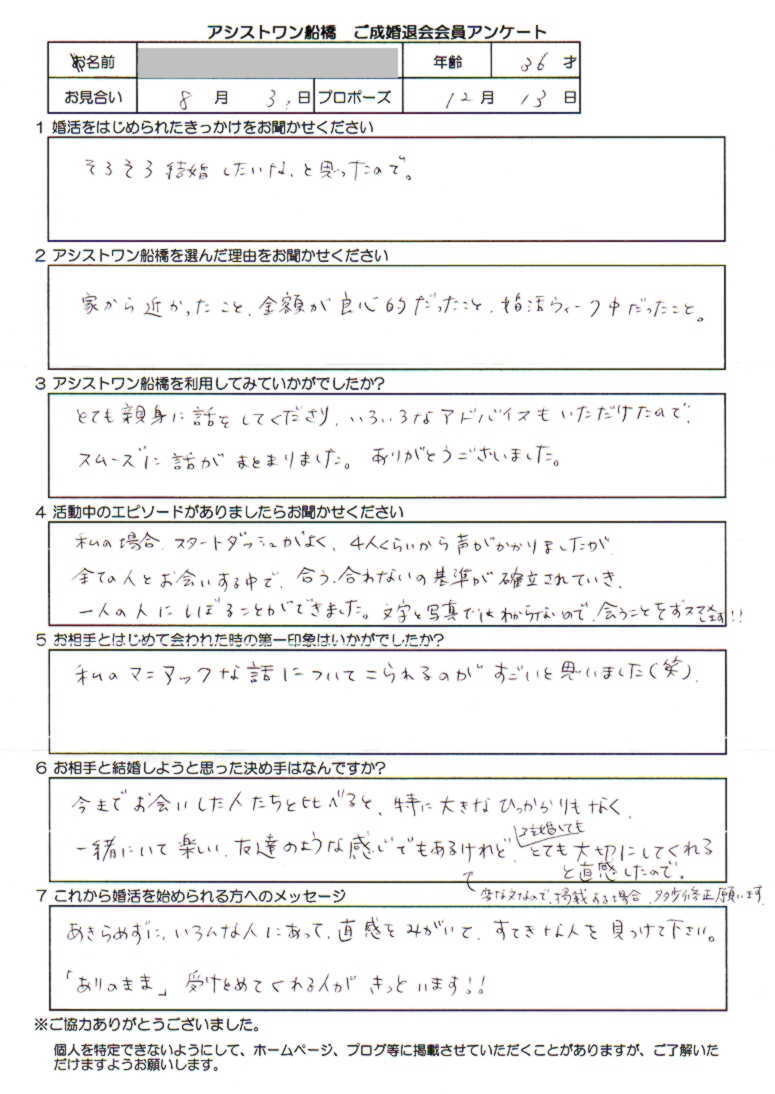 アシストワン船橋 ご成婚退会会員アンケート
お名前 年齢 36 才
お見合い 8 月 3 日 プロポーズ 12 月 13 日
1 婚活をはじめられたきっかけをお聞かせください
そろそろ結婚したいな、と思ったので。
2 アシストワン船橋を選んだ理由をお聞かせください
家から近かったこと、金額が良心的だったこと、婚活ウィーク中だったこと。
3 アシストワン船橋を利用してみていかがでしたか?
とても親身に話をしてくださり、いろいろなアドバイスもいただけたので、
スムーズに話がまとまりました。ありがとうございました。
4 活動中のエピソードがありましたらお聞かせください
私の場合、スタートダッシュがよく、4人くらいから声がかかりましたが
全ての人とお会いする中で、合う、合わないの基準が確立されていき、
一人の人にしぼることができました。文字と写真ではわからないので、会うことをオススメします!!
5 お相手とはじめて会われた時の第一印象はいかがでしたか?
私のマニアックな話についてこられるのがすごいと思いました(笑)
6 お相手と結婚しようと思った決め手はなんですか?
今までお会いした人たちと比べると、特に大きなひっかかりもなく、
一緒にいて楽しい、友達のような感じでもあるけれど、結婚しても
とても大切にしてくれる
と直感したので。
変な文なので、掲載する場合、多少修正願います
7 これから婚活を始められる方へのメッセージ
あきらめずに、いろんな人にあって、直感をみがいて、すてきな人を見つけて下さい。
「ありのまま」受けとめてくれる人がきっといます!!
※ご協力ありがとうございました。
個人を特定できないようにして、ホームページ、ブログ等に掲載させていただくことがありますが、ご了解いた
だけますようお願いします。